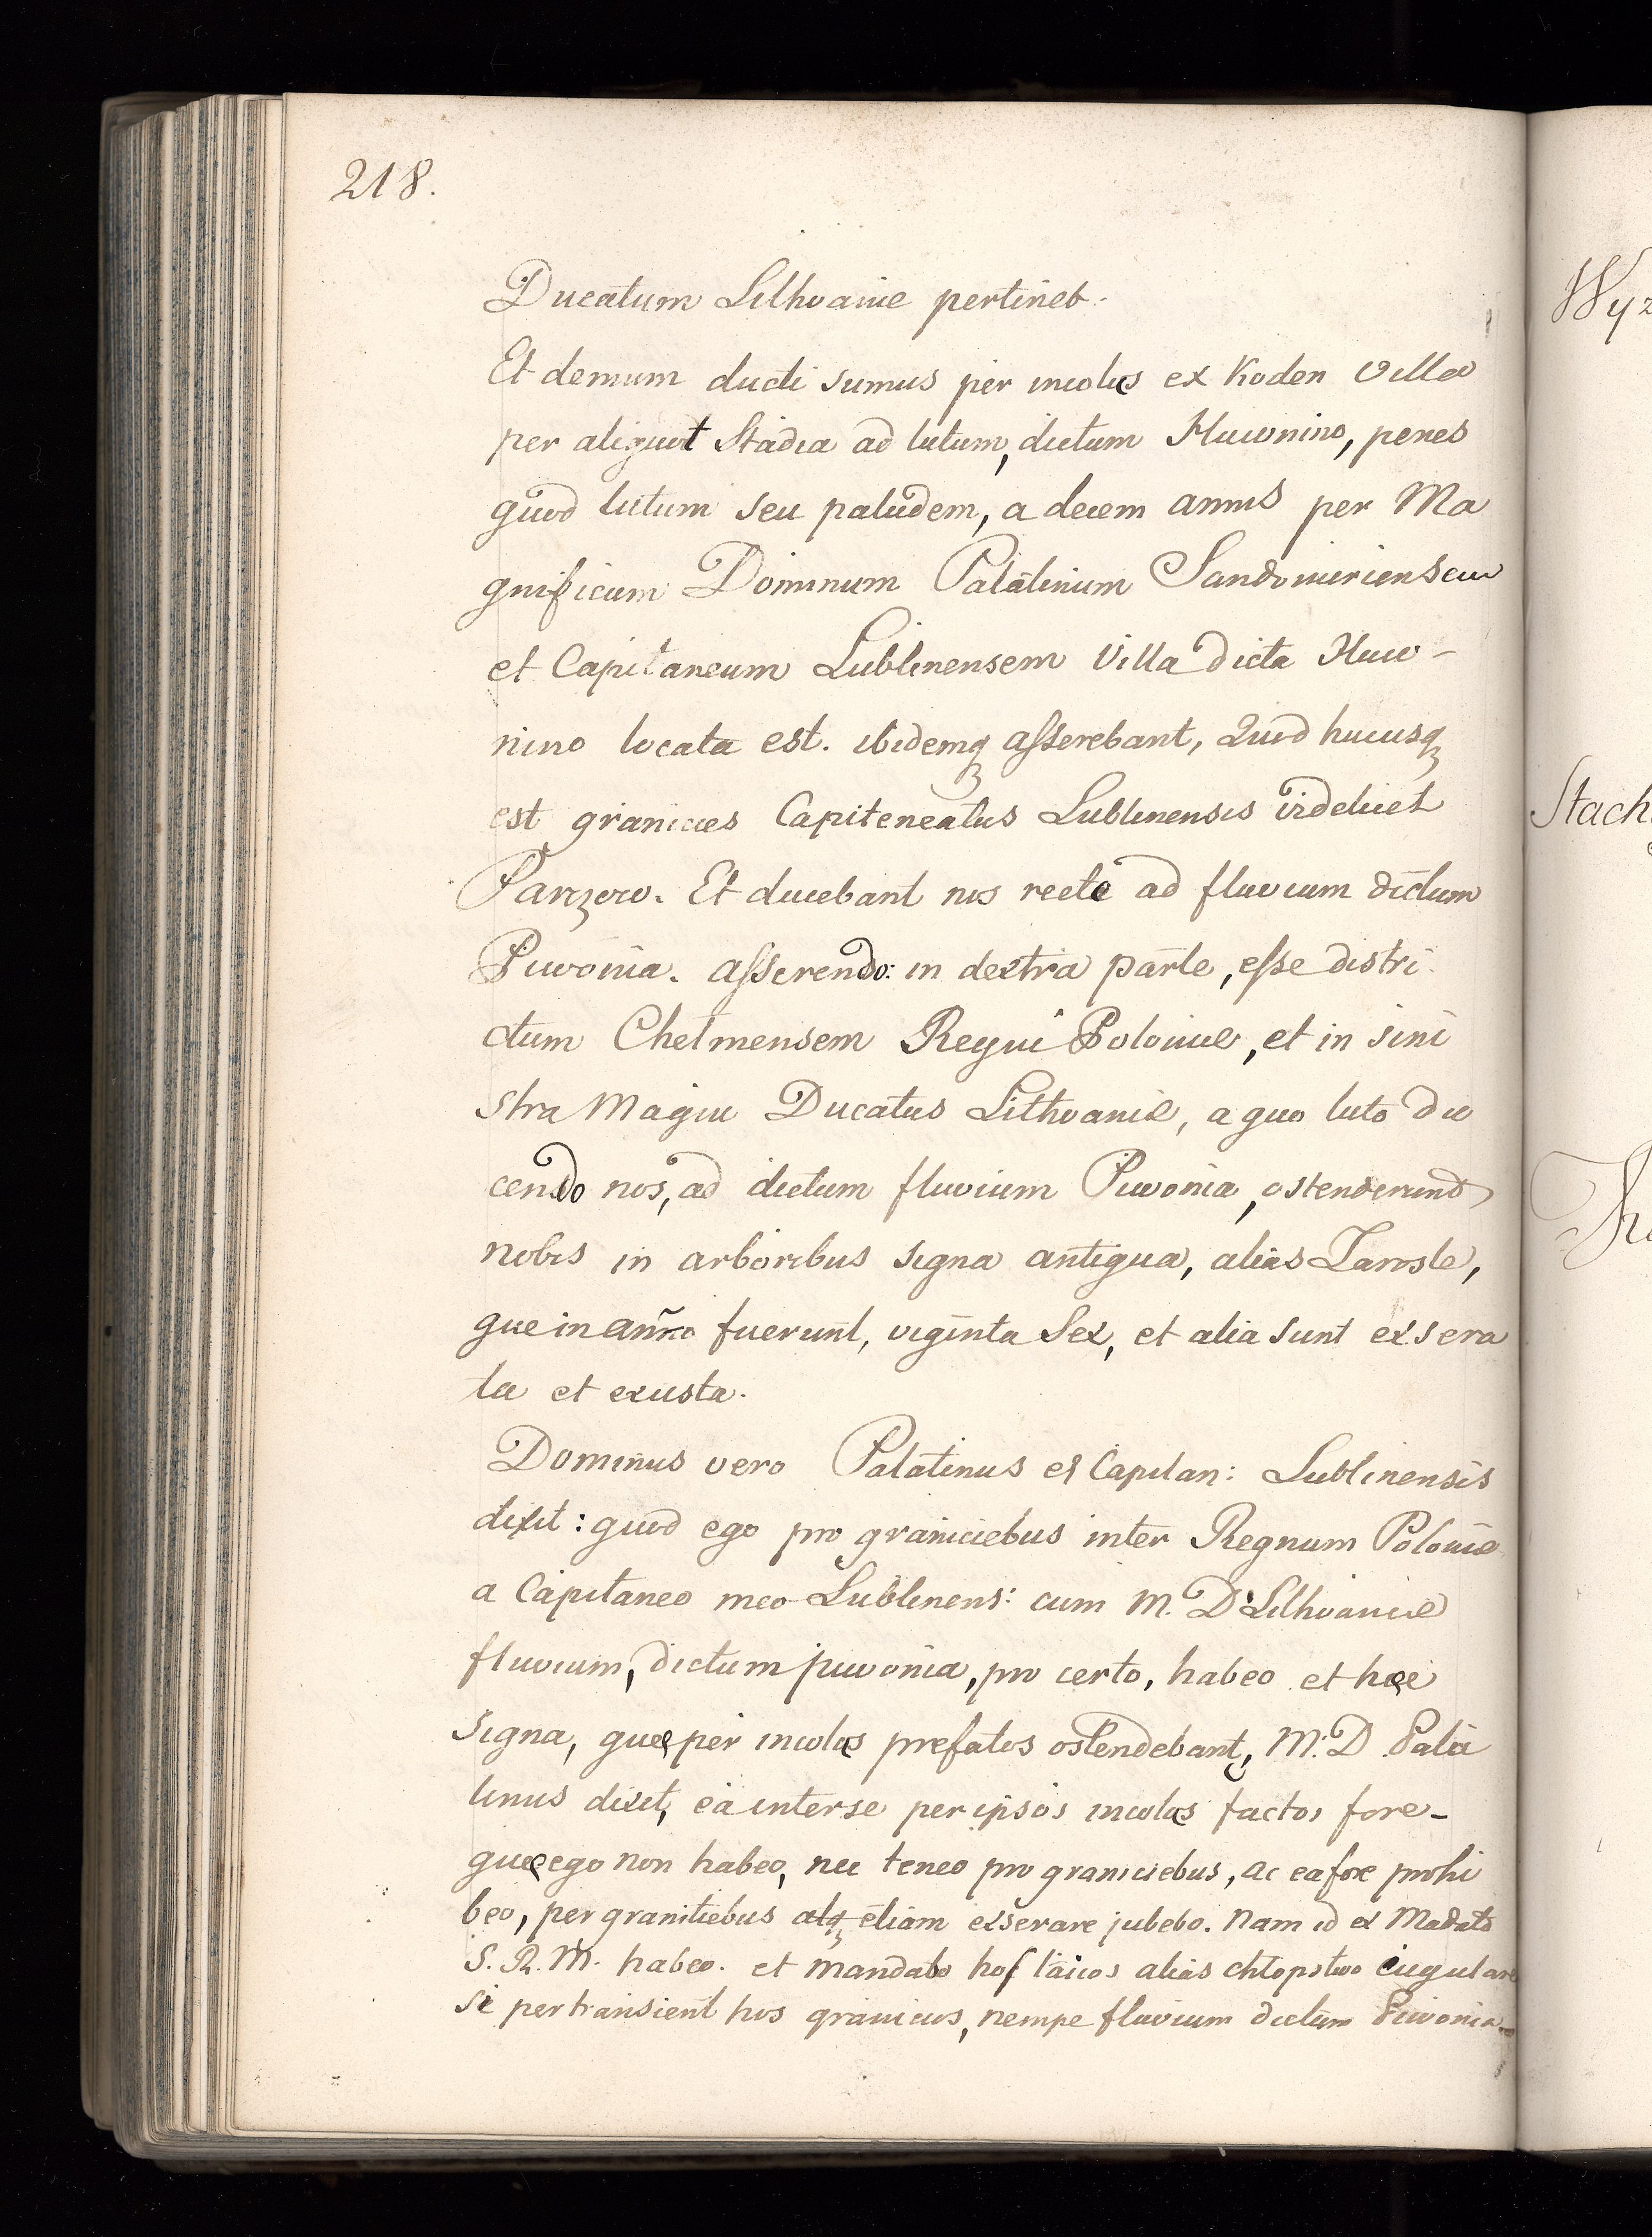 218.
Ducatum Lithvaniæ pertinet.
Et demum ducti sumus per incolas ex Koden Villa
per aliquot Stadia ad lutum, dictum Huwnino, penes
quod lutum seu paludem, a decem annis per Ma
gnificum Dominum Palatinum Sandomiriensem
et Capitaneum Lublinensem Villa dicta Huw-
nino locata est. ibidemq asserebant, Quod hucusq
est granicies Capiteneatus Lublinensis videlicet
Parczow. Et ducebant nos recte ad fluvium dictum
Piwonia. asserendo: in dextra parte, esse distri
ctum Chelmensem Regni Poloniæ, et in sini
stra Magni Ducatus Lithvaniæ, a quo luto du
cendo nos, ad dictum fluvium Piwonia, ostenderund
nobis in arboribus signa antiqua, alias Zarosle,
que in anno fuerunt, viginta Sex, et alia sunt exsera
ta et exusta.
Dominus vero Palatinus et Capitan: Lublinensis
dixit: quod ego pro graniciebus inter Regnum Poloniæ
a Capitaneo meo Lublinens: cum M. D. Lithvaniæ
fluvium, dictum piwonia, pro certo, habeo et hæc
Signa, quæ per incolas prefatos ostendebant, M. D Pala
tinus dixit, ea inter se per ipsos incolas factos fore-
quæ ego non habeo, nec teneo pro graniciebus, ac ea fore prohi
beo, per granitiebus alq etiam exserare jubebo. Nam id ex Madato
S. R. M. habeo. et mandabo hos laicos alias chłopstwo iugulare
si pertransient hos granicies, nempe fluvium dictum Piwonia
Wyz
Stach